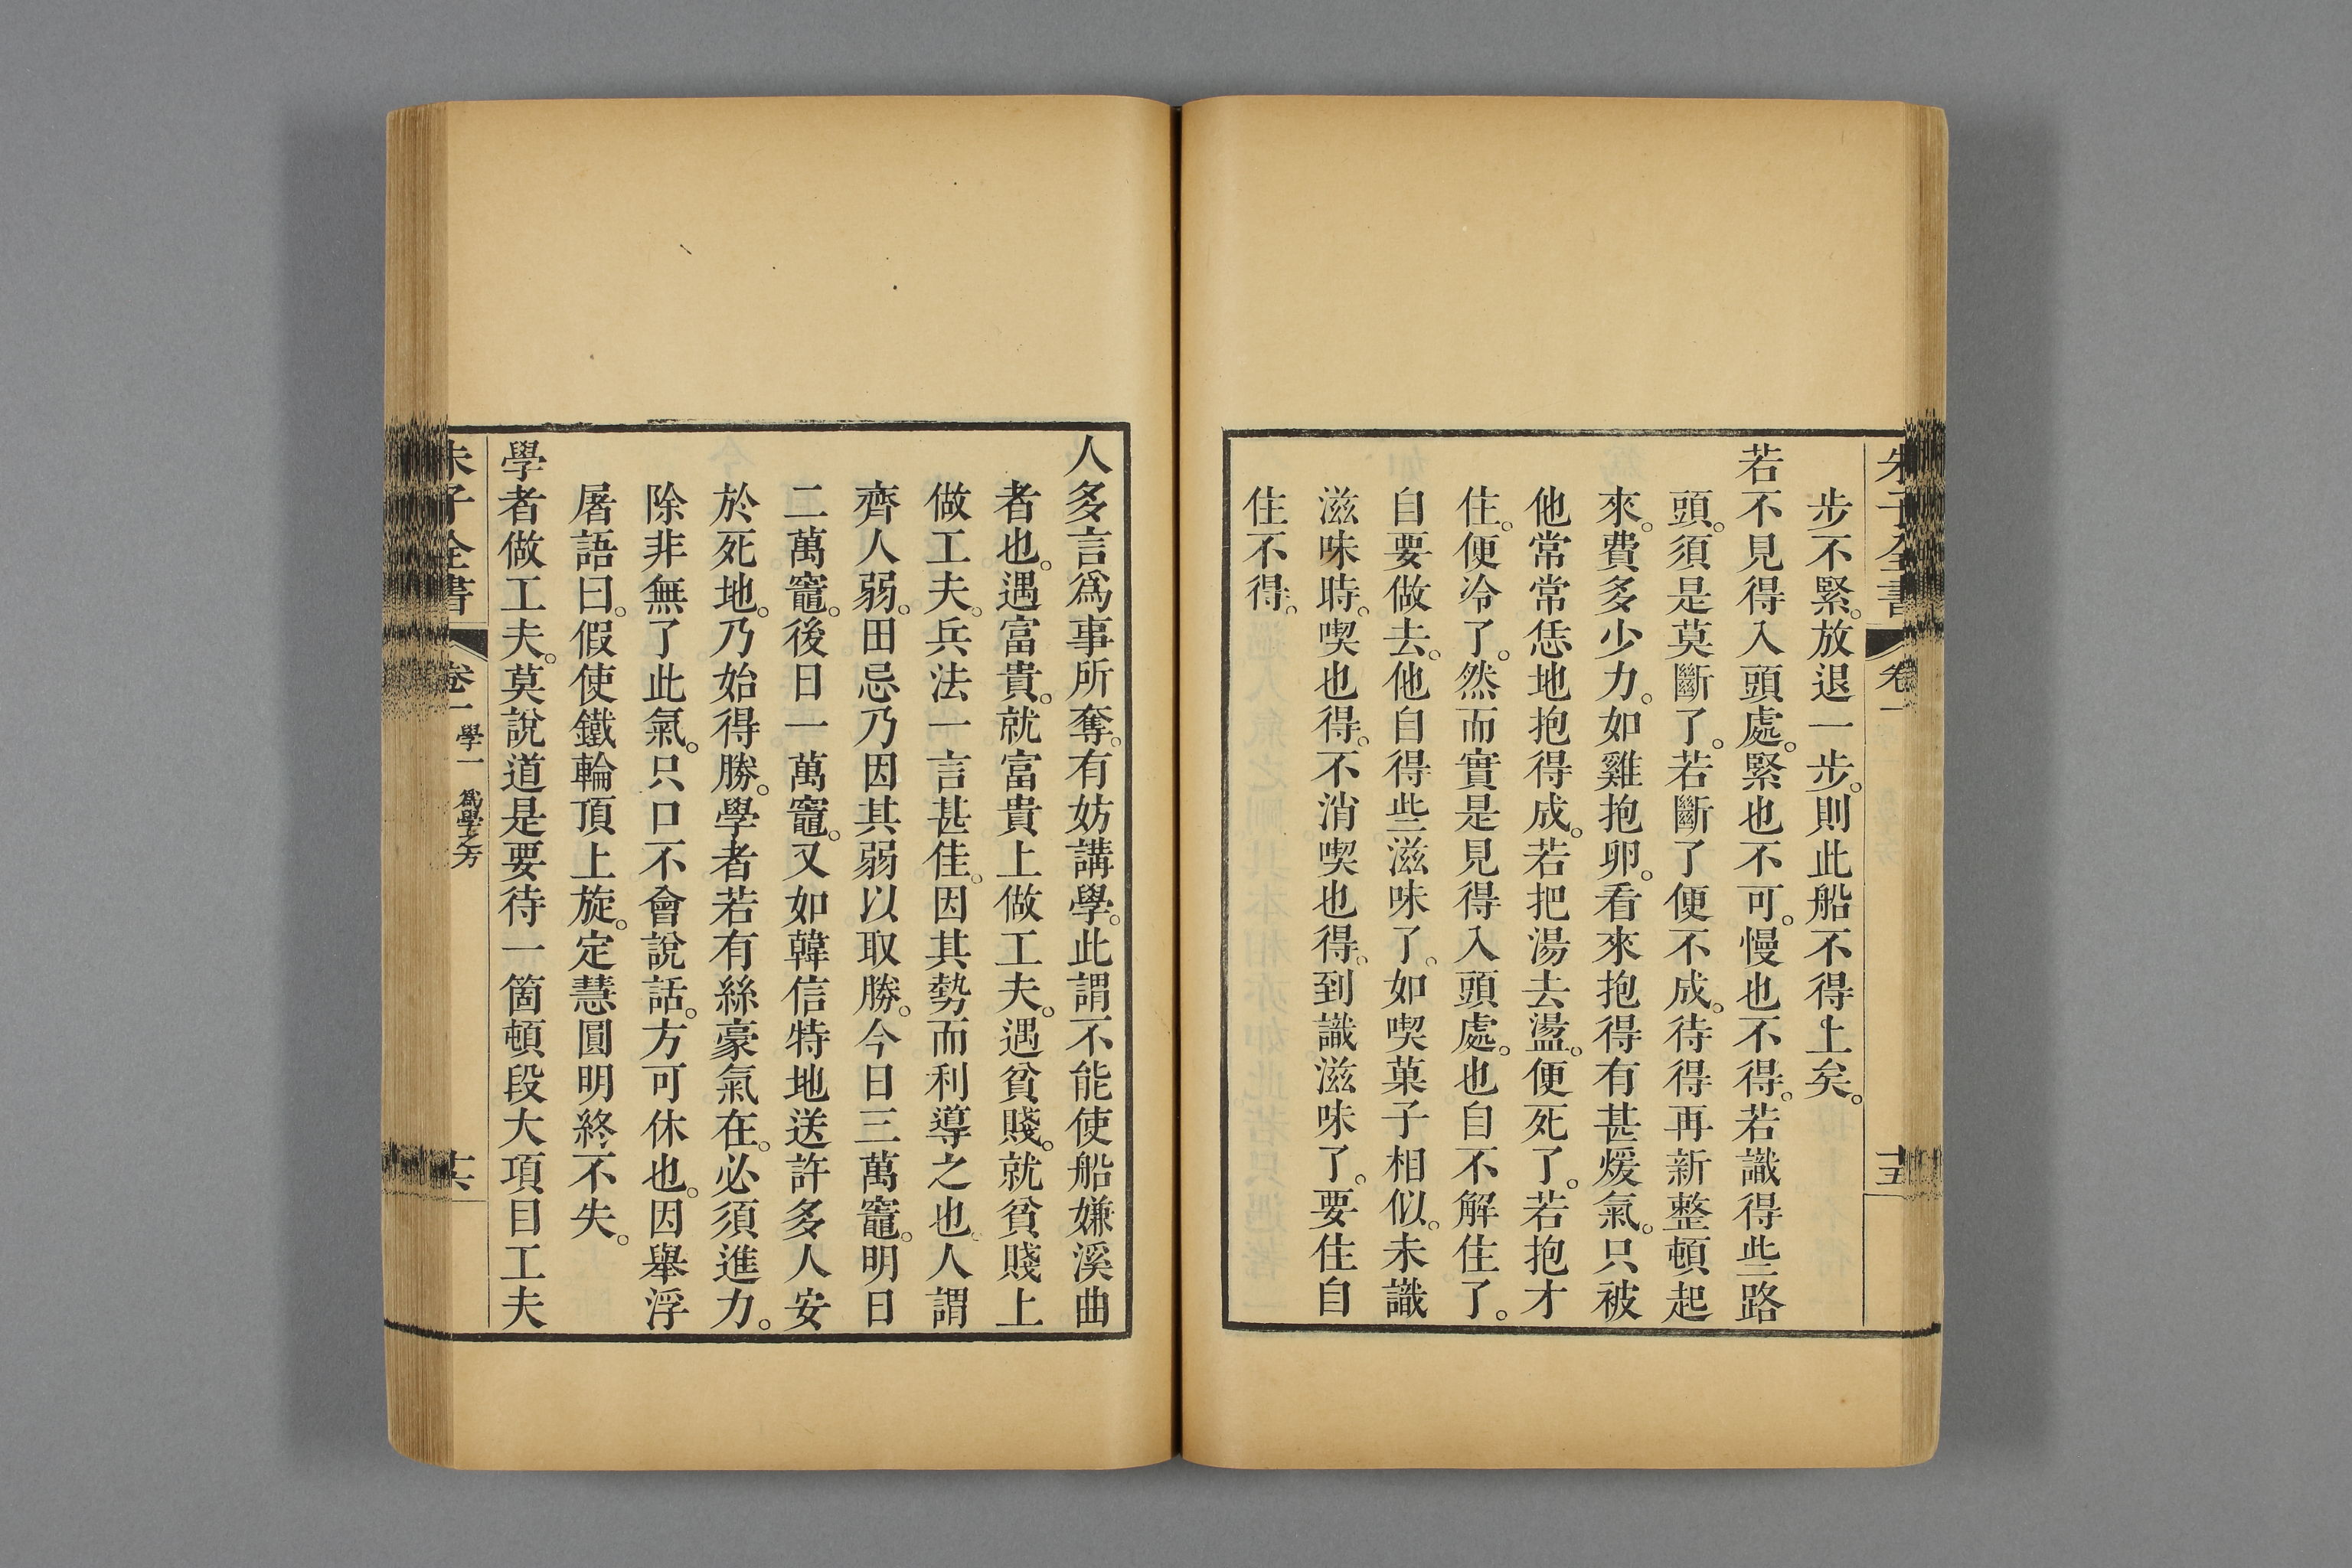 朱子全書 卷一 十五
步不緊。放退一步。則此船不得上矣。
若不見得入頭處。緊也不可。慢也不得。若識得些路
頭。須是莫斷了。若斷了便不成。待得再新整頓起
來。費多少力。如雞抱卵。看來抱得有甚煖氣。只被
他常常恁地抱得成。若把湯去盪。便死了。若抱才
住。便冷了。然而實是見得入頭處。也自不解住了。
自要做去。他自得些滋味了。如喫菓子相似。未識
滋味時。喫也得。不消喫也得。到識滋味了。要住自
住不得。
人多言爲事所奪。有妨講學。此謂不能使船嫌溪曲
者也。遇富貴。就富貴上做工夫。遇貧賤。就貧賤上
做工夫。兵法一言甚佳。因其勢而利導之也。人謂
齊人弱。田忌乃因其弱以取勝。今日三萬竈。明日
二萬竈。後日一萬竈。又如韓信特地送許多人安
於死地。乃始得勝。學者若有絲豪氣在。必須進力。
除非無了此氣。只口不會說話。方可休也。因舉浮
屠語曰。假使鐵輪頂上旋。定慧圓明終不失。
學者做工夫。莫說道是要待一箇頓段大項目工夫
朱子全書 卷一 學一 爲學之方 十六